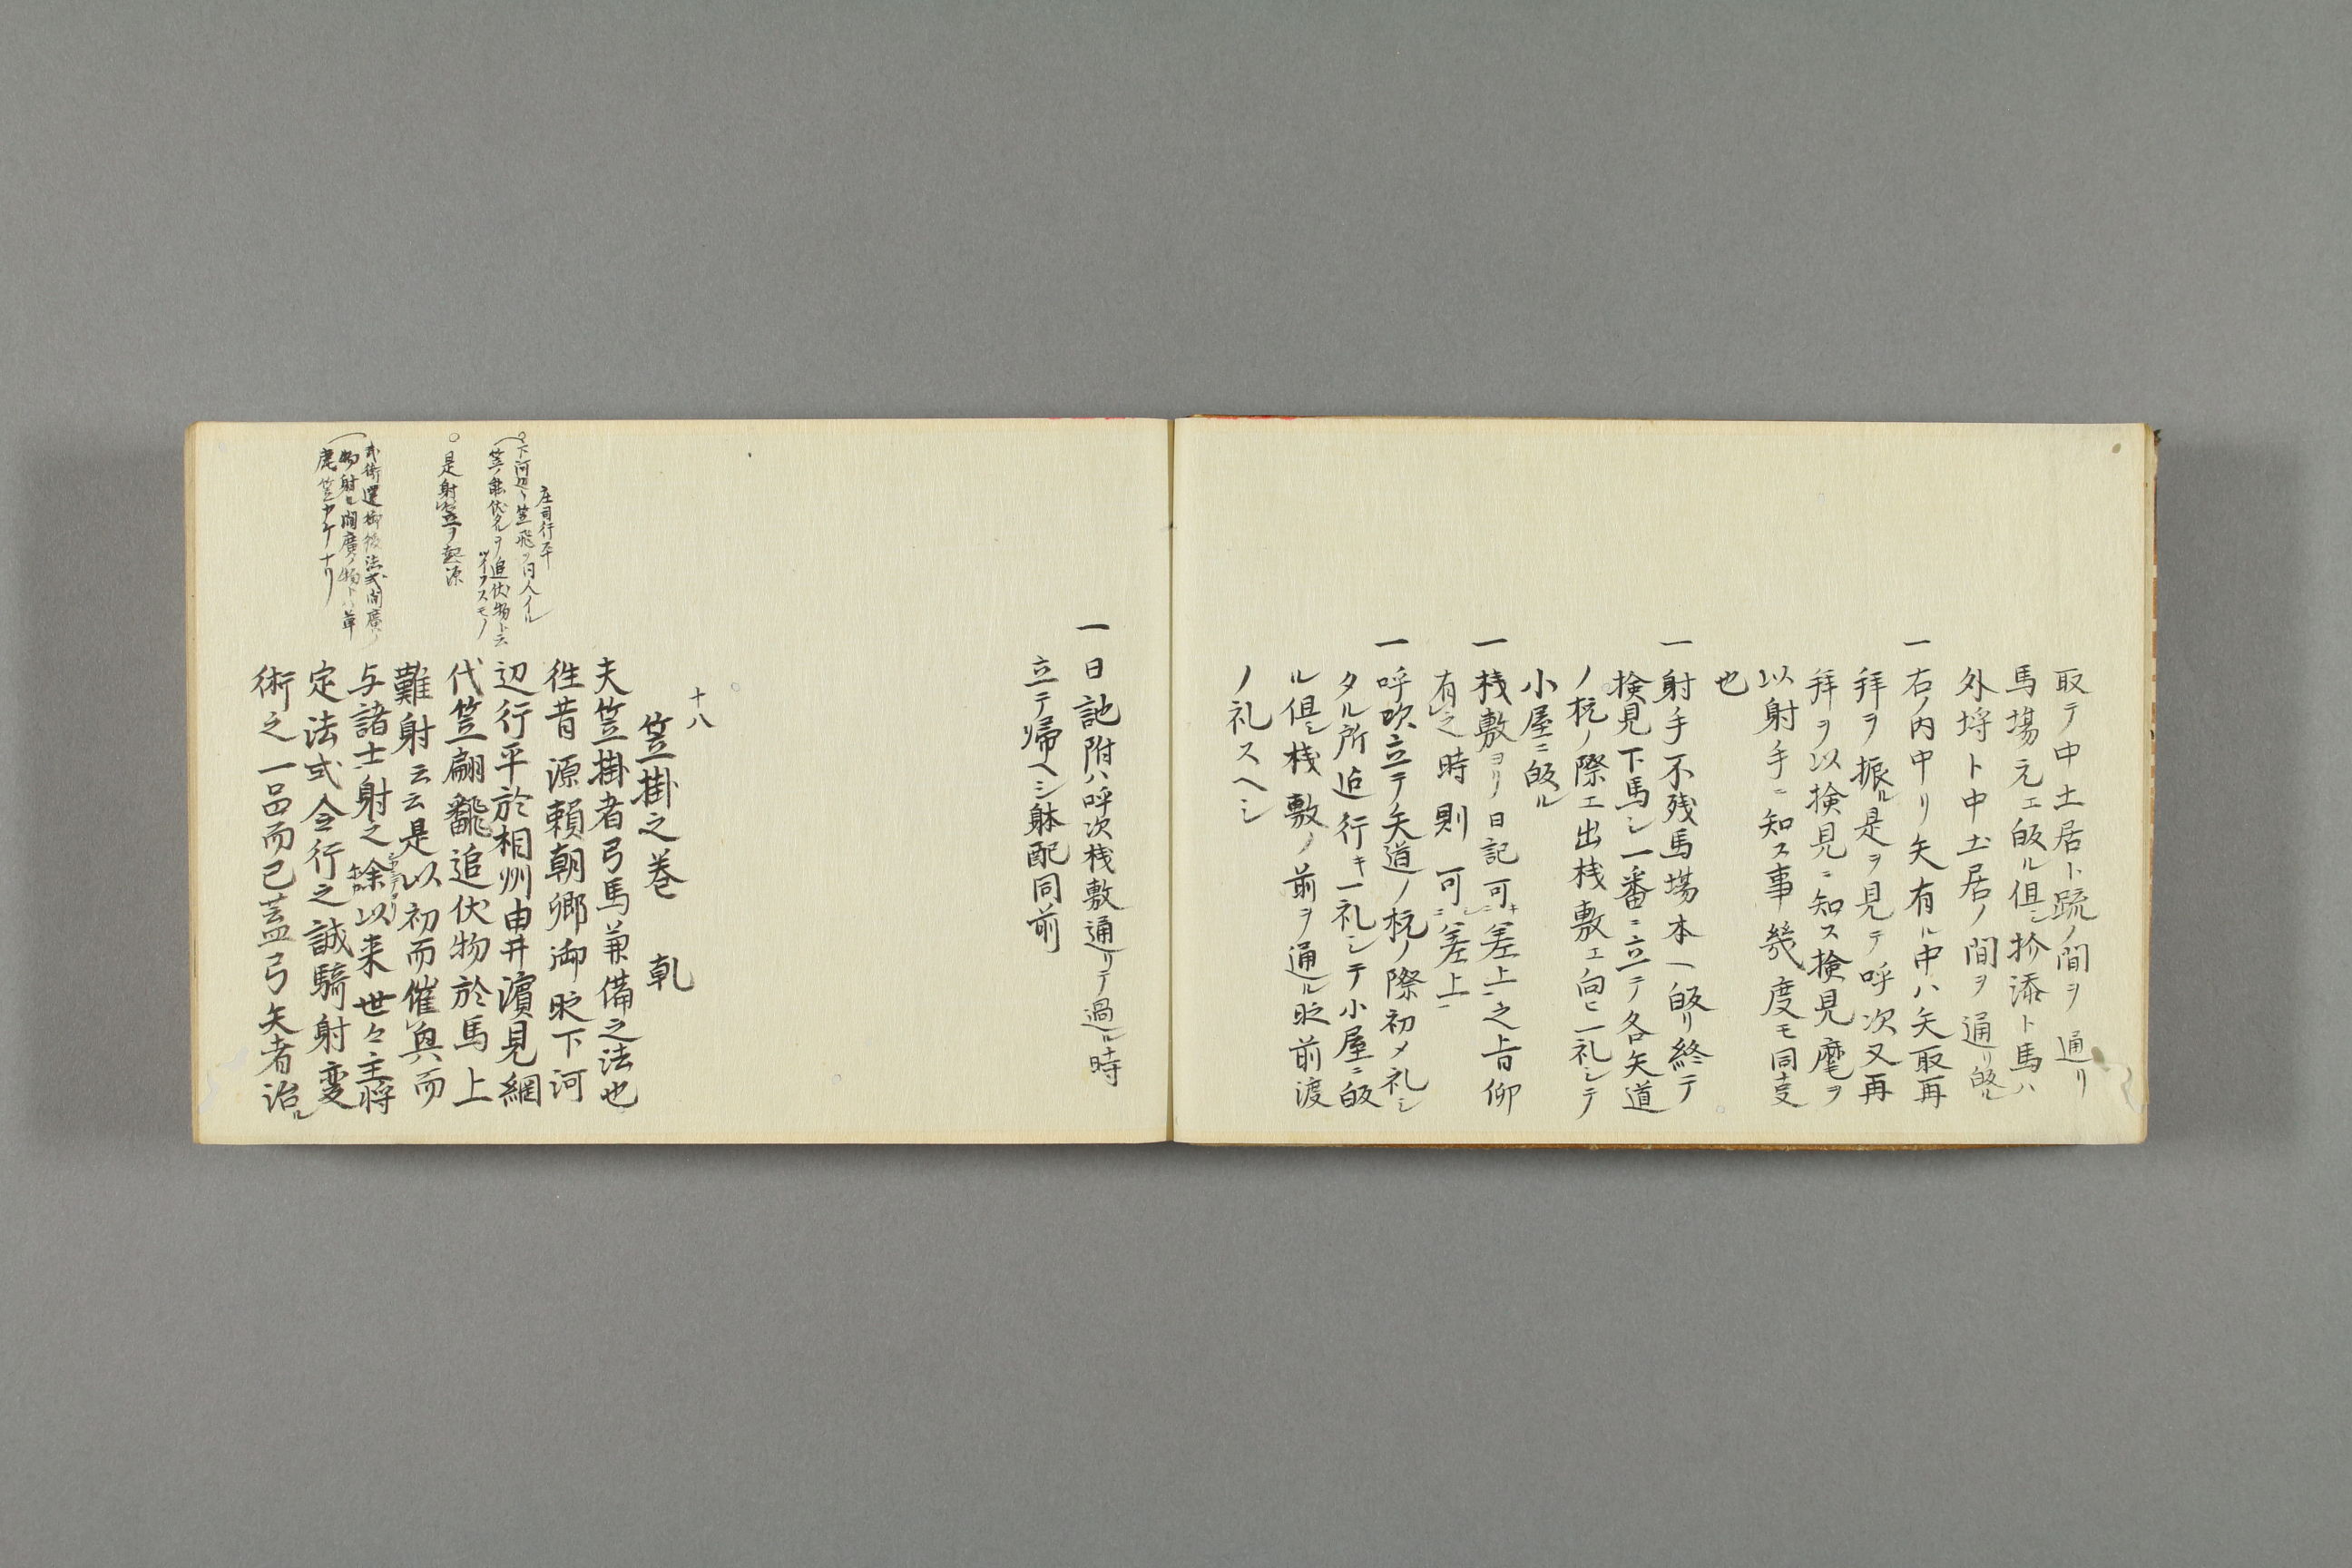 取テ中土居ト疏ノ間ヲ通リ
馬場元エ皈ル但シ捴添ト馬ハ
外埒ト中土居ノ間ヲ通リ皈ル
一右ノ内中リ矢有ル中ハ矢取再
拝ヲ振ル是ヲ見テ呼次又再
拝ヲ以検見ニ知ス検見麾ヲ
以射手ニ知ス事幾度モ同支
也
一射手不残馬場本ヘ皈リ終テ
検見下馬シ一番ニ立テ各矢道
ノ杭ノ際エ出桟敷エ向ヒ一礼シテ
小屋ニ皈ル
一桟敷ヨリ日記可キ差上之旨仰
有之時則可差上
一呼次立テ矢道ノ杭ノ際初メ礼シ
タル所迠行キ一礼シテ小屋ニ皈
ル但シ桟敷ノ前ヲ通ル時前渡
ノ礼スヘシ
一日記附ハ呼次桟敷通リテ過ル時
立テ帰ヘシ躰配同前
十八
笠掛之巻 乹
夫笠掛者弓馬兼備之法也
徃昔源頼朝卿御时下河
辺行平於相州由井濵見網
代笠翩飜追伏物於馬上
難射云云是以初而催興而
与諸士射之餘以来世々主将
定法式令行之誠騎射変
術之一品而已蓋弓矢者治ル
庄司行平
下河辺
是射笠ノ起源
鹿笠カケナリ